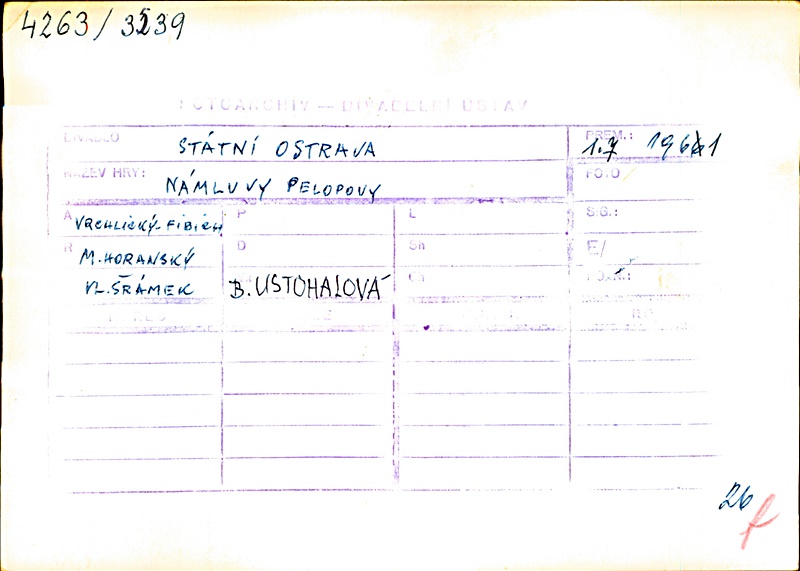 4263/3239
FOTOARCHIV — DIVADELNÍ ÚSTAV
DIVADLO STÁTNÍ OSTRAVA PREM.: 1.7 1961
NÁZEV HRY: NÁMLUVY PELOPOVY FOTO
A VRCHLICKÝ-FIBICH P L SIG.:
R M. HORANSKÝ D Sh E/
VL. ŠRÁMEK B. USTOHALOVÁ Ch
26